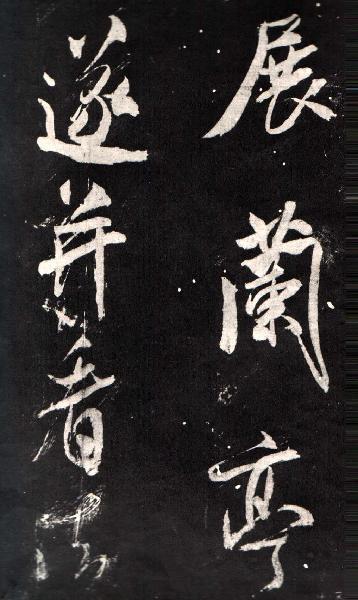 展蘭亭
遂并看